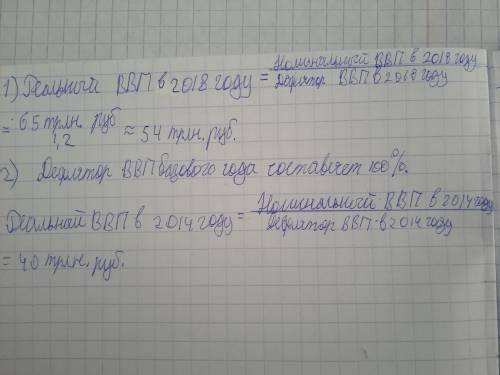 1) Реальный ВВП в 2018 году = Номинальный ВВП в 2018 году / Дефлятор ВВП в 2018 году
= 65 трлн. руб / 1,2 ≈ 54 трлн. руб.
2) Дефлятор ВВП базового года составляет 100%.
Реальный ВВП в 2014 году = Номинальный ВВП в 2014 году / Дефлятор ВВП в 2014 году
= 40 трлн. руб.